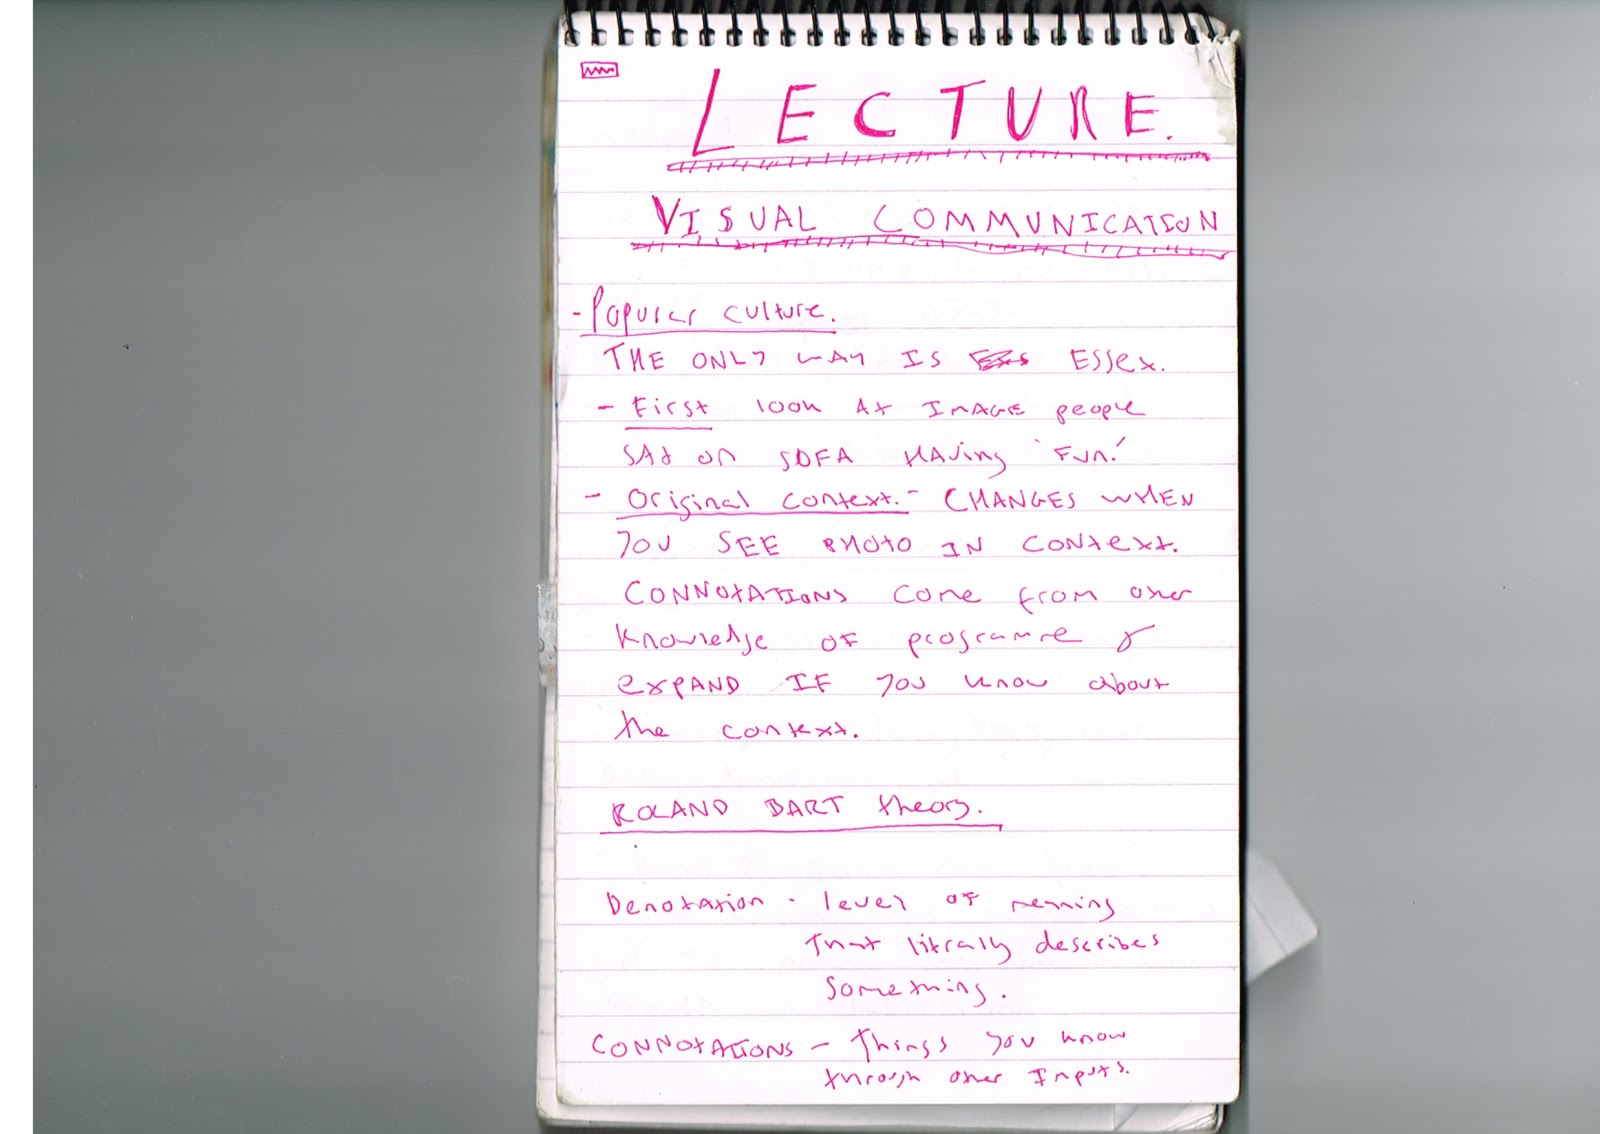 LECTURE.
VISUAL COMMUNICATION
- Popular culture.
THE ONLY WAY IS ESSEX.
- First look At IMAGE people
SAt on SOFA HAving 'Fun!'
- Original context. - CHANGES WHEN
YOU SEE PHOTO IN CONtext.
CONNOtATIONS come from other
knowledge OF programme &
expAND IF you know about
the context.
ROLAND BART theory.
Denotation - level OF meaning
that litraly describes
Something.
CONNOtATIONS - Things you know
through other Inputs.